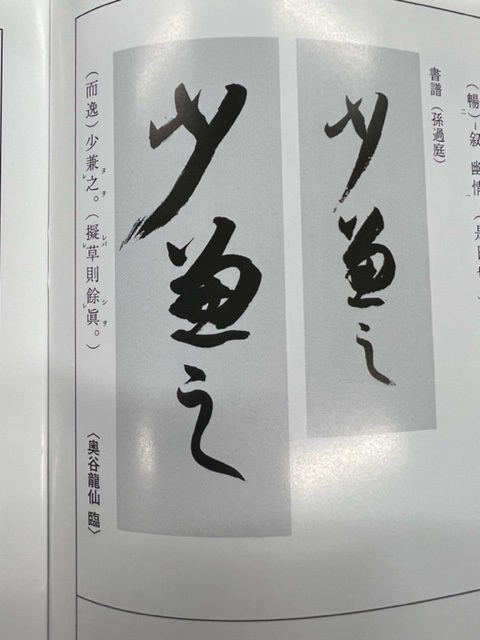 (暢)叙幽情
書譜(孫過庭)
少兼之
少兼之
(而逸)少兼之。(擬草則餘眞。)
〈奥谷龍仙 臨〉